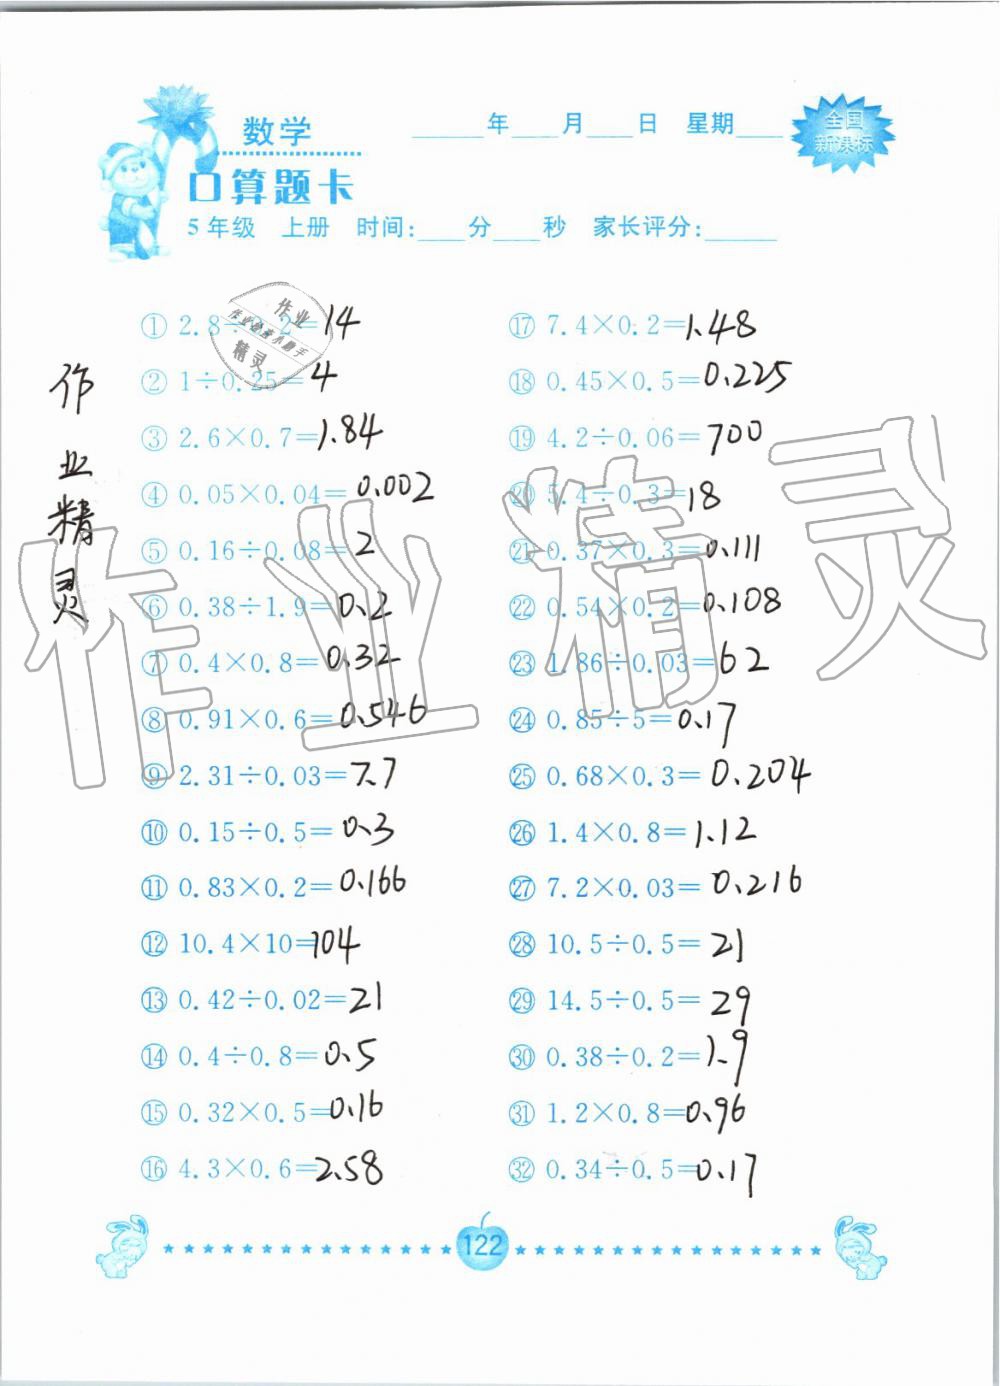 数学
____年____月____日 星期____
全国
新课标
口算题卡
5年级 上册 时间:____分____秒 家长评分:______
作业
作业检查小助手
精灵
作业精灵
① 2.8÷ 2=14
② 1÷0.25=4
③ 2.6×0.7=1.84
④ 0.05×0.04=0.002
⑤ 0.16÷0.08=2
⑥ 0.38÷1.9=0.2
⑦ 0.4×0.8=0.32
⑧ 0.91×0.6=0.546
⑨ 2.31÷0.03=7.7
⑩ 0.15÷0.5=0.3
⑪ 0.83×0.2=0.166
⑫ 10.4×10=104
⑬ 0.42÷0.02=21
⑭ 0.4÷0.8=0.5
⑮ 0.32×0.5=0.16
⑯ 4.3×0.6=2.58
⑰ 7.4×0.2=1.48
⑱ 0.45×0.5=0.225
⑲ 4.2÷0.06=700
⑳ 5.4÷0.3=18
㉑ 0.37×0.3=0.111
㉒ 0.54×0.2=0.108
㉓ 1.86÷0.03=62
㉔ 0.85÷5=0.17
㉕ 0.68×0.3=0.204
㉖ 1.4×0.8=1.12
㉗ 7.2×0.03=0.216
㉘ 10.5÷0.5=21
㉙ 14.5÷0.5=29
㉚ 0.38÷0.2=1.9
㉛ 1.2×0.8=0.96
㉜ 0.34÷0.5=0.17
作业精灵
122